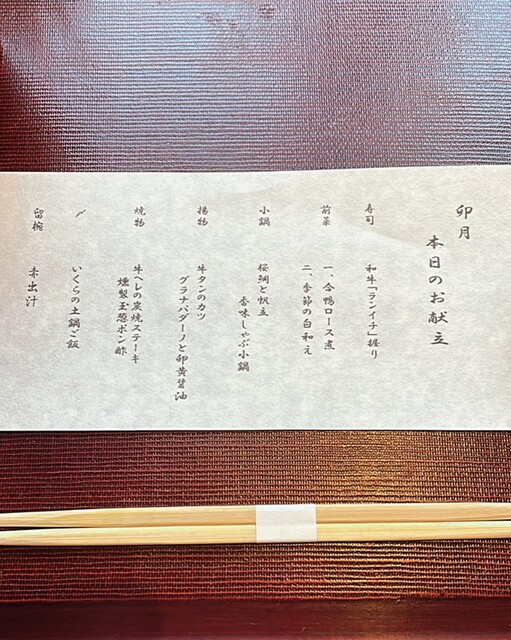 卯月
本日のお献立
寿司 和牛「ランイチ」握り
前菜 一、合鴨ロース煮
二、季節の白和え
小鍋 桜鯛と帆立
香味しゃぶ小鍋
揚物 牛タンのカツ
グラナパダーノと卵黄醤油
焼物 牛ヘレの炭焼ステーキ
燻製玉葱ポン酢
〆 いくらの土鍋ご飯
留椀 赤出汁